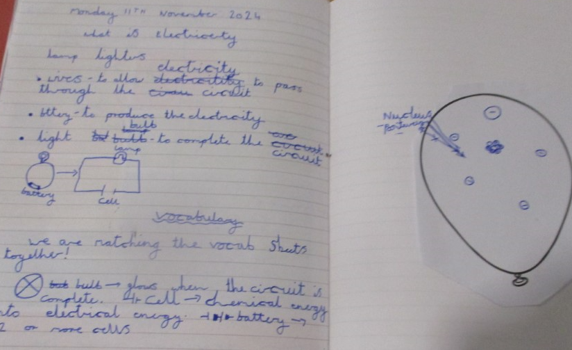 Monday 11TH November 2024
what is electricity
lamp lighters
electricity
• wires - to allow electricity to pass
through the circuit
• bttery - to produce the electricity
bulb
• light - to complete the
circuit
lamp
battery
cell
vocabulary
we are matching the vocab sheets
together!
bulb → glows when the circuit is
complete. Cell → chemical energy
into electrical energy. battery →
2 or more cells
Nucleus